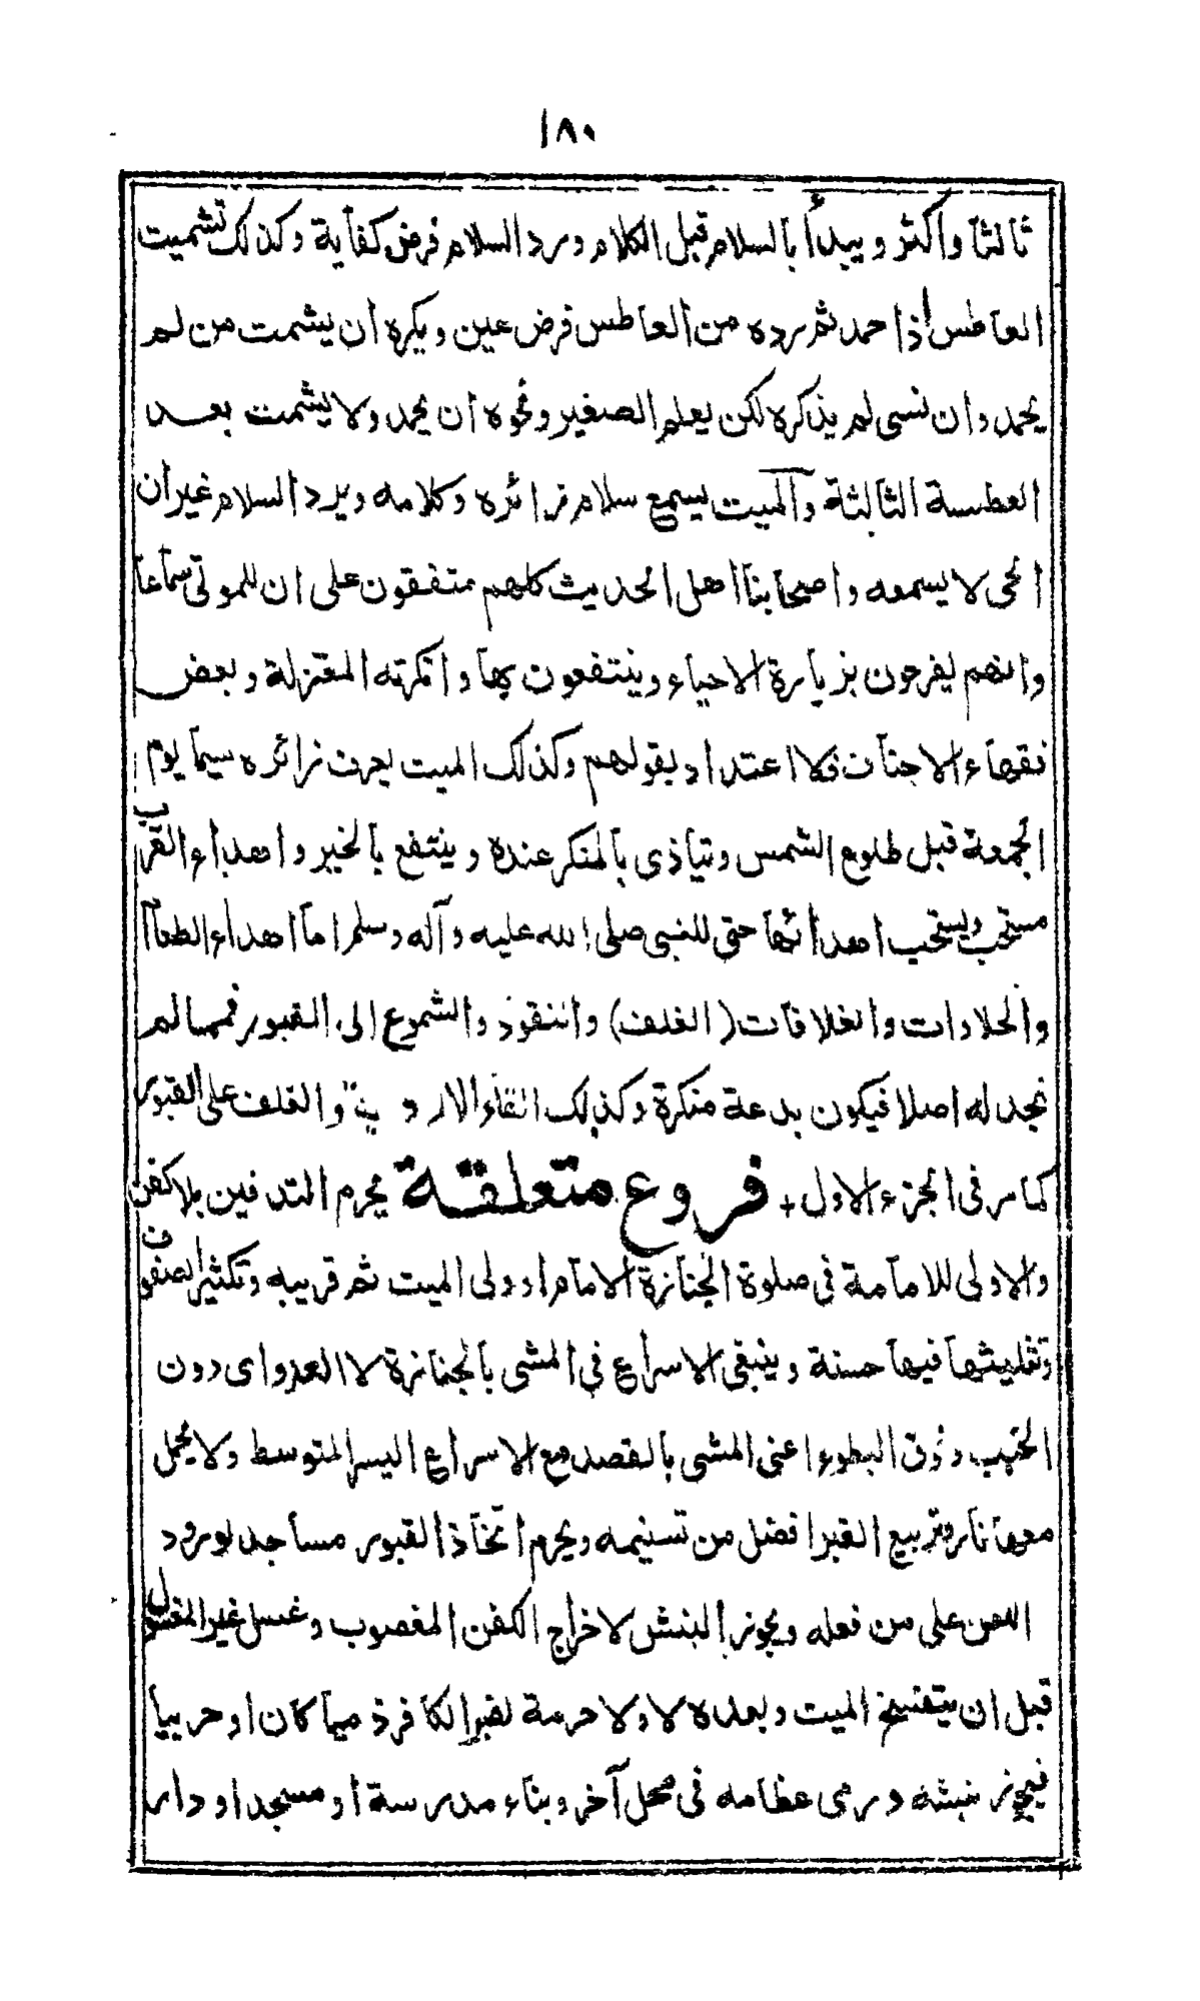 ١٨٠
ثالثا وأكثر و يبدأ بالسلام قبل الكلام ورد السلام فرض كفاية وكذلك تشميت
العاطس إذا حمد ثم رده من العاطس فرض عين ويكره أن يشمت من لم
يحمد وان نسى لم يذكره لكن يعلم الصغير ونحوه أن يحمد ولا يشمت بعد
العطسة الثالثة والميت يسمع سلام زائره وكلامه ويرد السلام غير أن
الحى لا يسمعه واصحابنا اهل الحديث كلهم متفقون على ان للموتى سماعا
وانهم يفرحون بزيارة الاحياء وينتفعون بها وانكرته المعتزلة وبعض
فقهاء الاحناف فلا اعتداد بقولهم وكذلك الميت يعرف زائره سيما يوم
الجمعة قبل طلوع الشمس ويتاذى بالمنكر عنده وينتفع بالخير واهداء القرب
مستحب ويستحب اهدائها حتى للنبى صلى الله عليه وآله وسلم اما اهداء الطعام
والحلاوات والغلافات (الغلف) والنقود والشموع الى القبور فمما لم
نجد له اصلا فيكون بدعة منكرة وكذلك القاء الاردية والغلف على القبور
كما مر فى الجزء الاول + فروع متعلقة يحرم التدفين بلا كفن
والاولى للامامة فى صلوة الجنازة الامام او ولى الميت ثم قريبه وتكثير الصفوف
وتثليثها فيها حسنة وينبغى الاسراع فى المشى بالجنازة لا العدو اى دون
الخبب وفوق البطوء اعنى المشى بالقصد مع الاسراع اليسر المتوسط ولا يحمل
معها نار وتربيع القبر افضل من تسنيمه ويحرم اتخاذ القبور مساجد لورود
اللعن على من فعله ويجوز النبش لاخراج الكفن المغصوب وغسل غير المغسول
قبل ان يتفسخ الميت وبعده لا ولا حرمة لقبر الكافر ذميا كان او حربيا
فيجوز نبشه ورمى عظامه فى محل آخر وبناء مدرسة او مسجد او دار